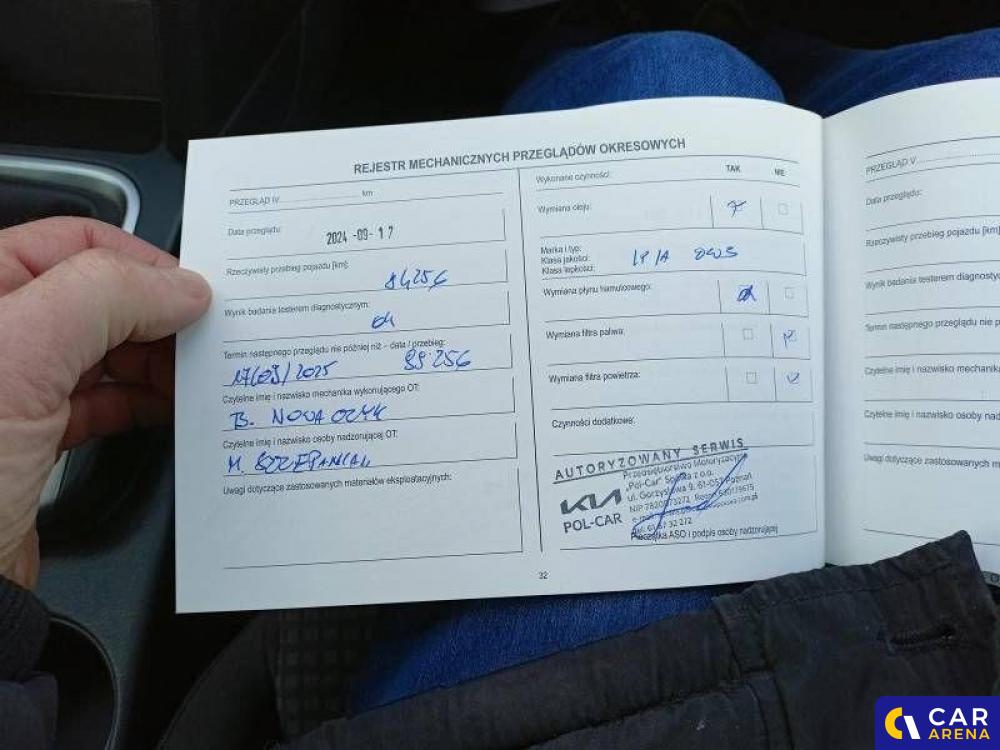 REJESTR MECHANICZNYCH PRZEGLĄDÓW OKRESOWYCH
PRZEGLĄD IV km
Data przeglądu: 2024-09-17
Rzeczywisty przebieg pojazdu [km]:
84256
Wynik badania testerem diagnostycznym:
ok
Termin następnego przeglądu nie później niż - data / przebieg:
17/09/2025 99 256
Czytelne imię i nazwisko mechanika wykonującego OT:
B. NOWACZYK
Czytelne imię i nazwisko osoby nadzorującej OT:
M. SZCZEPANIAK
Uwagi dotyczące zastosowanych materiałów eksploatacyjnych:
Wykonane czynności: TAK NIE
Wymiana oleju:
Marka i typ:
Klasa jakości:
Klasa lepkości:
Wymiana płynu hamulcowego:
Wymiana filtra paliwa:
Wymiana filtra powietrza:
Czynności dodatkowe:
AUTORYZOWANY SERWIS
KIA
POL-CAR
Przedsiębiorstwo Motoryzacyjne
"Pol-Car" Spółka z o.o.
ul. Gorzysława 9, 61-057 Poznań
Pieczątka ASO i podpis osoby nadzorującej
32
PRZEGLĄD V
Data przeglądu:
Rzeczywisty przebieg pojazdu [km]
Wynik badania testerem
Termin następnego przeglądu nie
Czytelne imię i nazwisko
Czytelne imię i nazwisko osoby
Uwagi dotyczące zastosowanych
CAR
ARENA